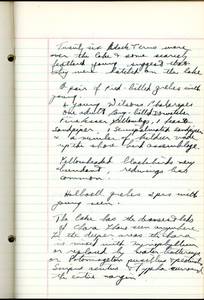 Twenty six Black Terns were
over the lake & some scarcely
feathered young suggest that
they were hatched on the lake
A pair of Pied-billed grebes with
young
4 young Wilsons Phalaropes
one adult Long-billed dowitcher
Killdeer, 1 least
Sandpiper, 1 Semipalmated Sandpiper
a number of killdeer make
up the shore bird assemblage.
Yellowheaded blackbirds very
abundant, redwings less
common.
Holboell grebes seen with
young seen.
The lake has the densest beds
of Chara I have seen anywhere
In the deeper areas the chara
is mixed with myriophyllum
or replaced by
Potamogeton pusillus
Scirpus acutus & Typha surround
the entire margin